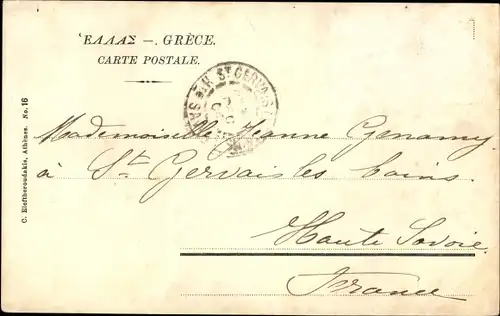 ἙΛΛΑΣ — GRÈCE.
CARTE POSTALE.
C. Eleftheroudakis, Athènes. No. 16
ST GERVAIS
Mademoiselle Jeanne Genamy
à St Gervais les bains.
Haute Savoie
France